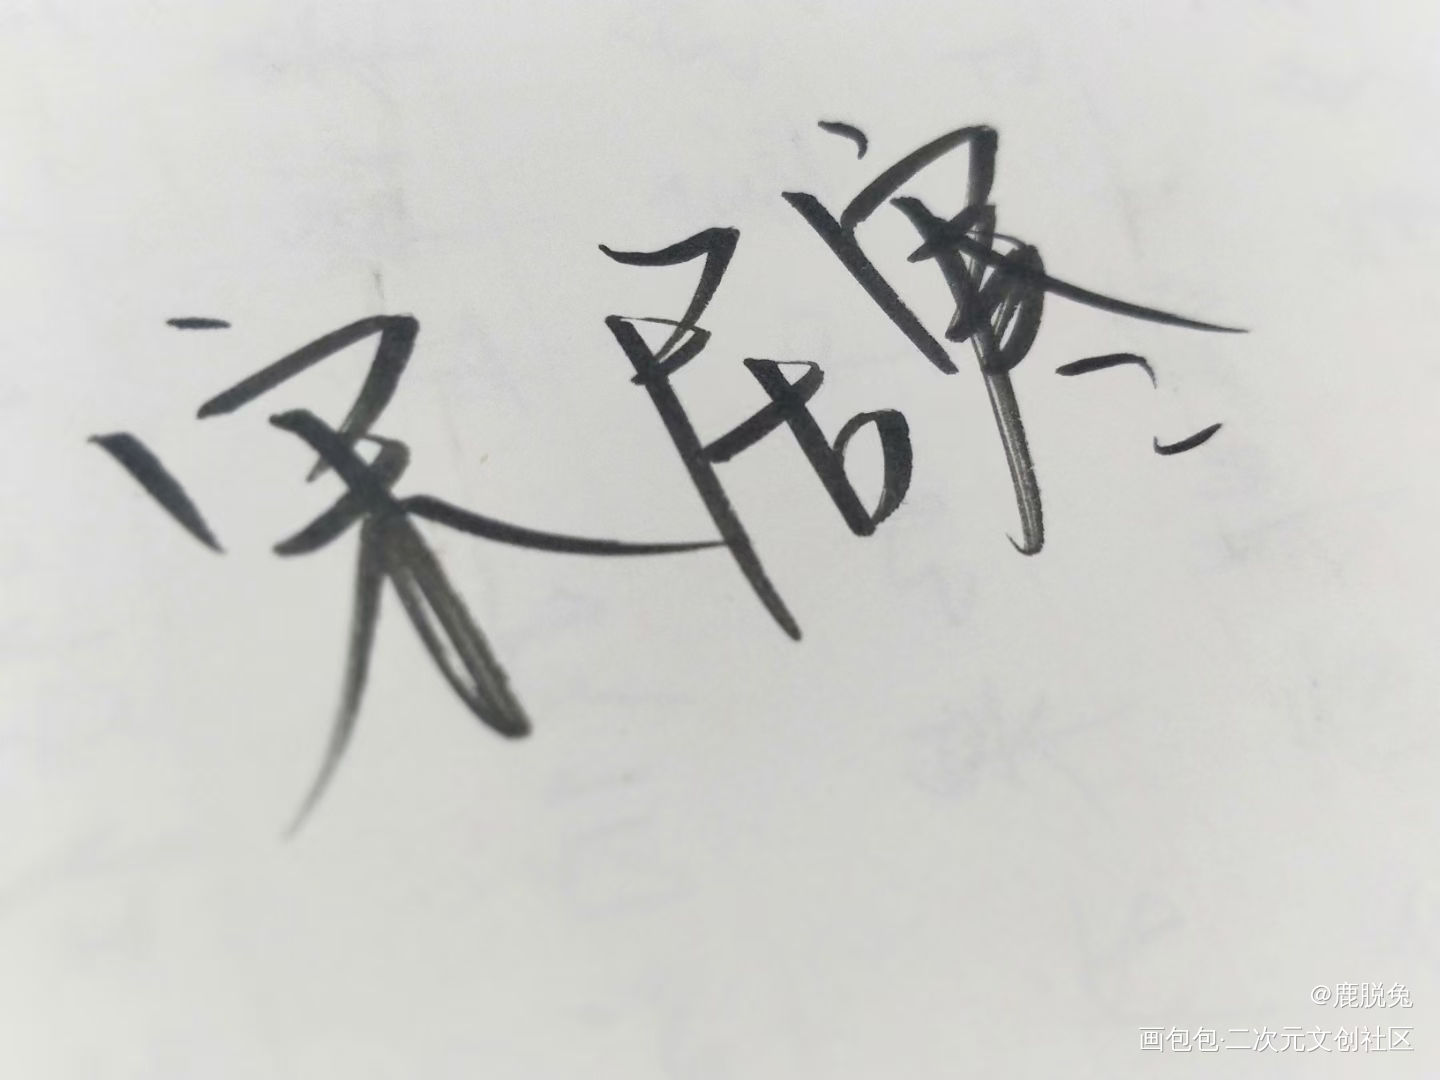 宋居寒
@鹿脱兔
画包包·二次元文创社区